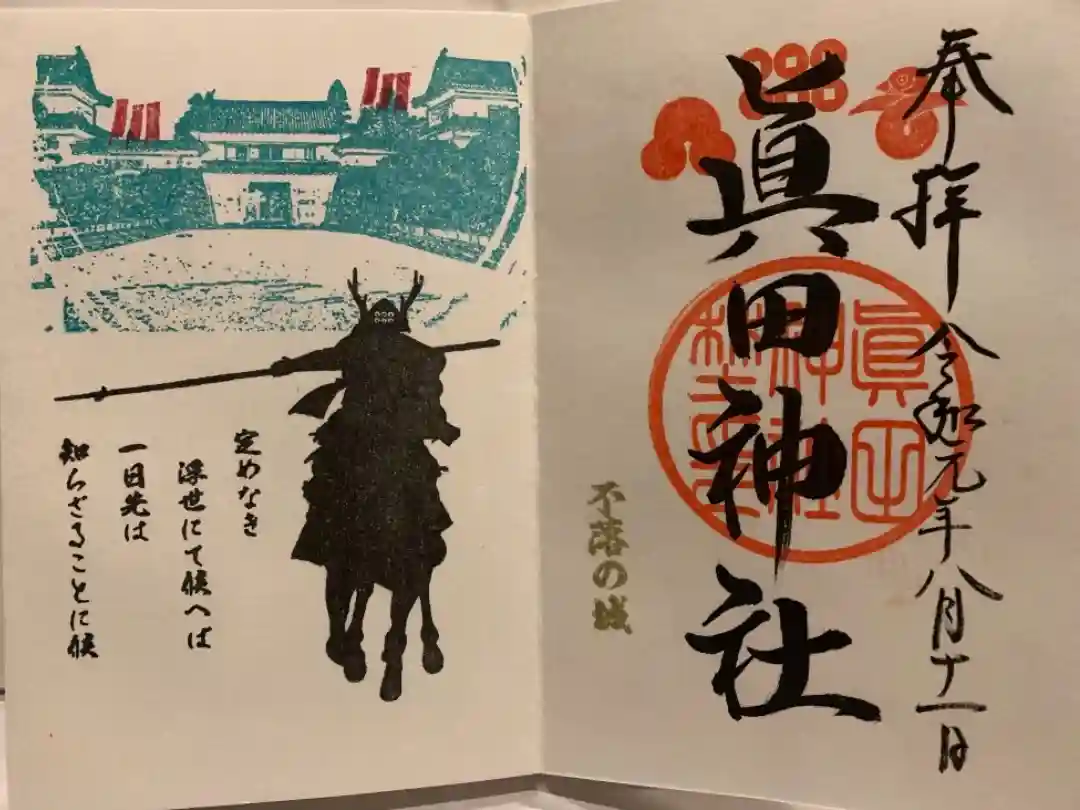 奉拝 令和元年八月十一日
眞田神社
眞田
神社
不落の城
定めなき
浮世にて候へば
一日先は
知らざることに候